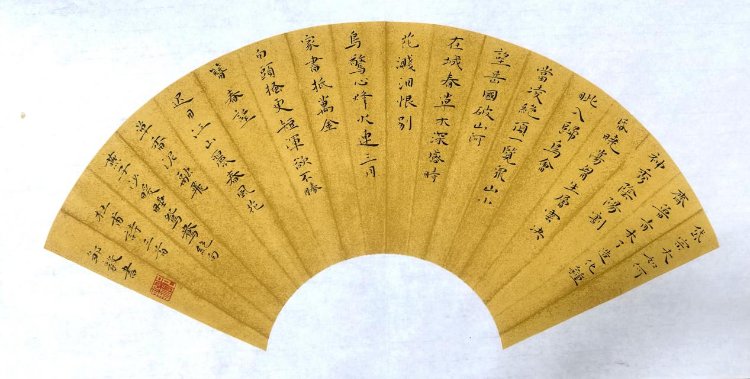 岱宗夫如何
齊魯青未了造化鍾
神秀陰陽割
昏曉盪胸生層雲決
眦入歸鳥會
當凌絕頂一覽眾山小
望岳國破山河
在城春草木深感時
花濺泪恨別
鳥驚心烽火連三月
家書抵萬金
白頭搔更短渾欲不勝
簪春望
遲日江山麗春風花
草香泥融飛
燕子沙暖睡鴛鴦絕句
杜甫詩三首
書